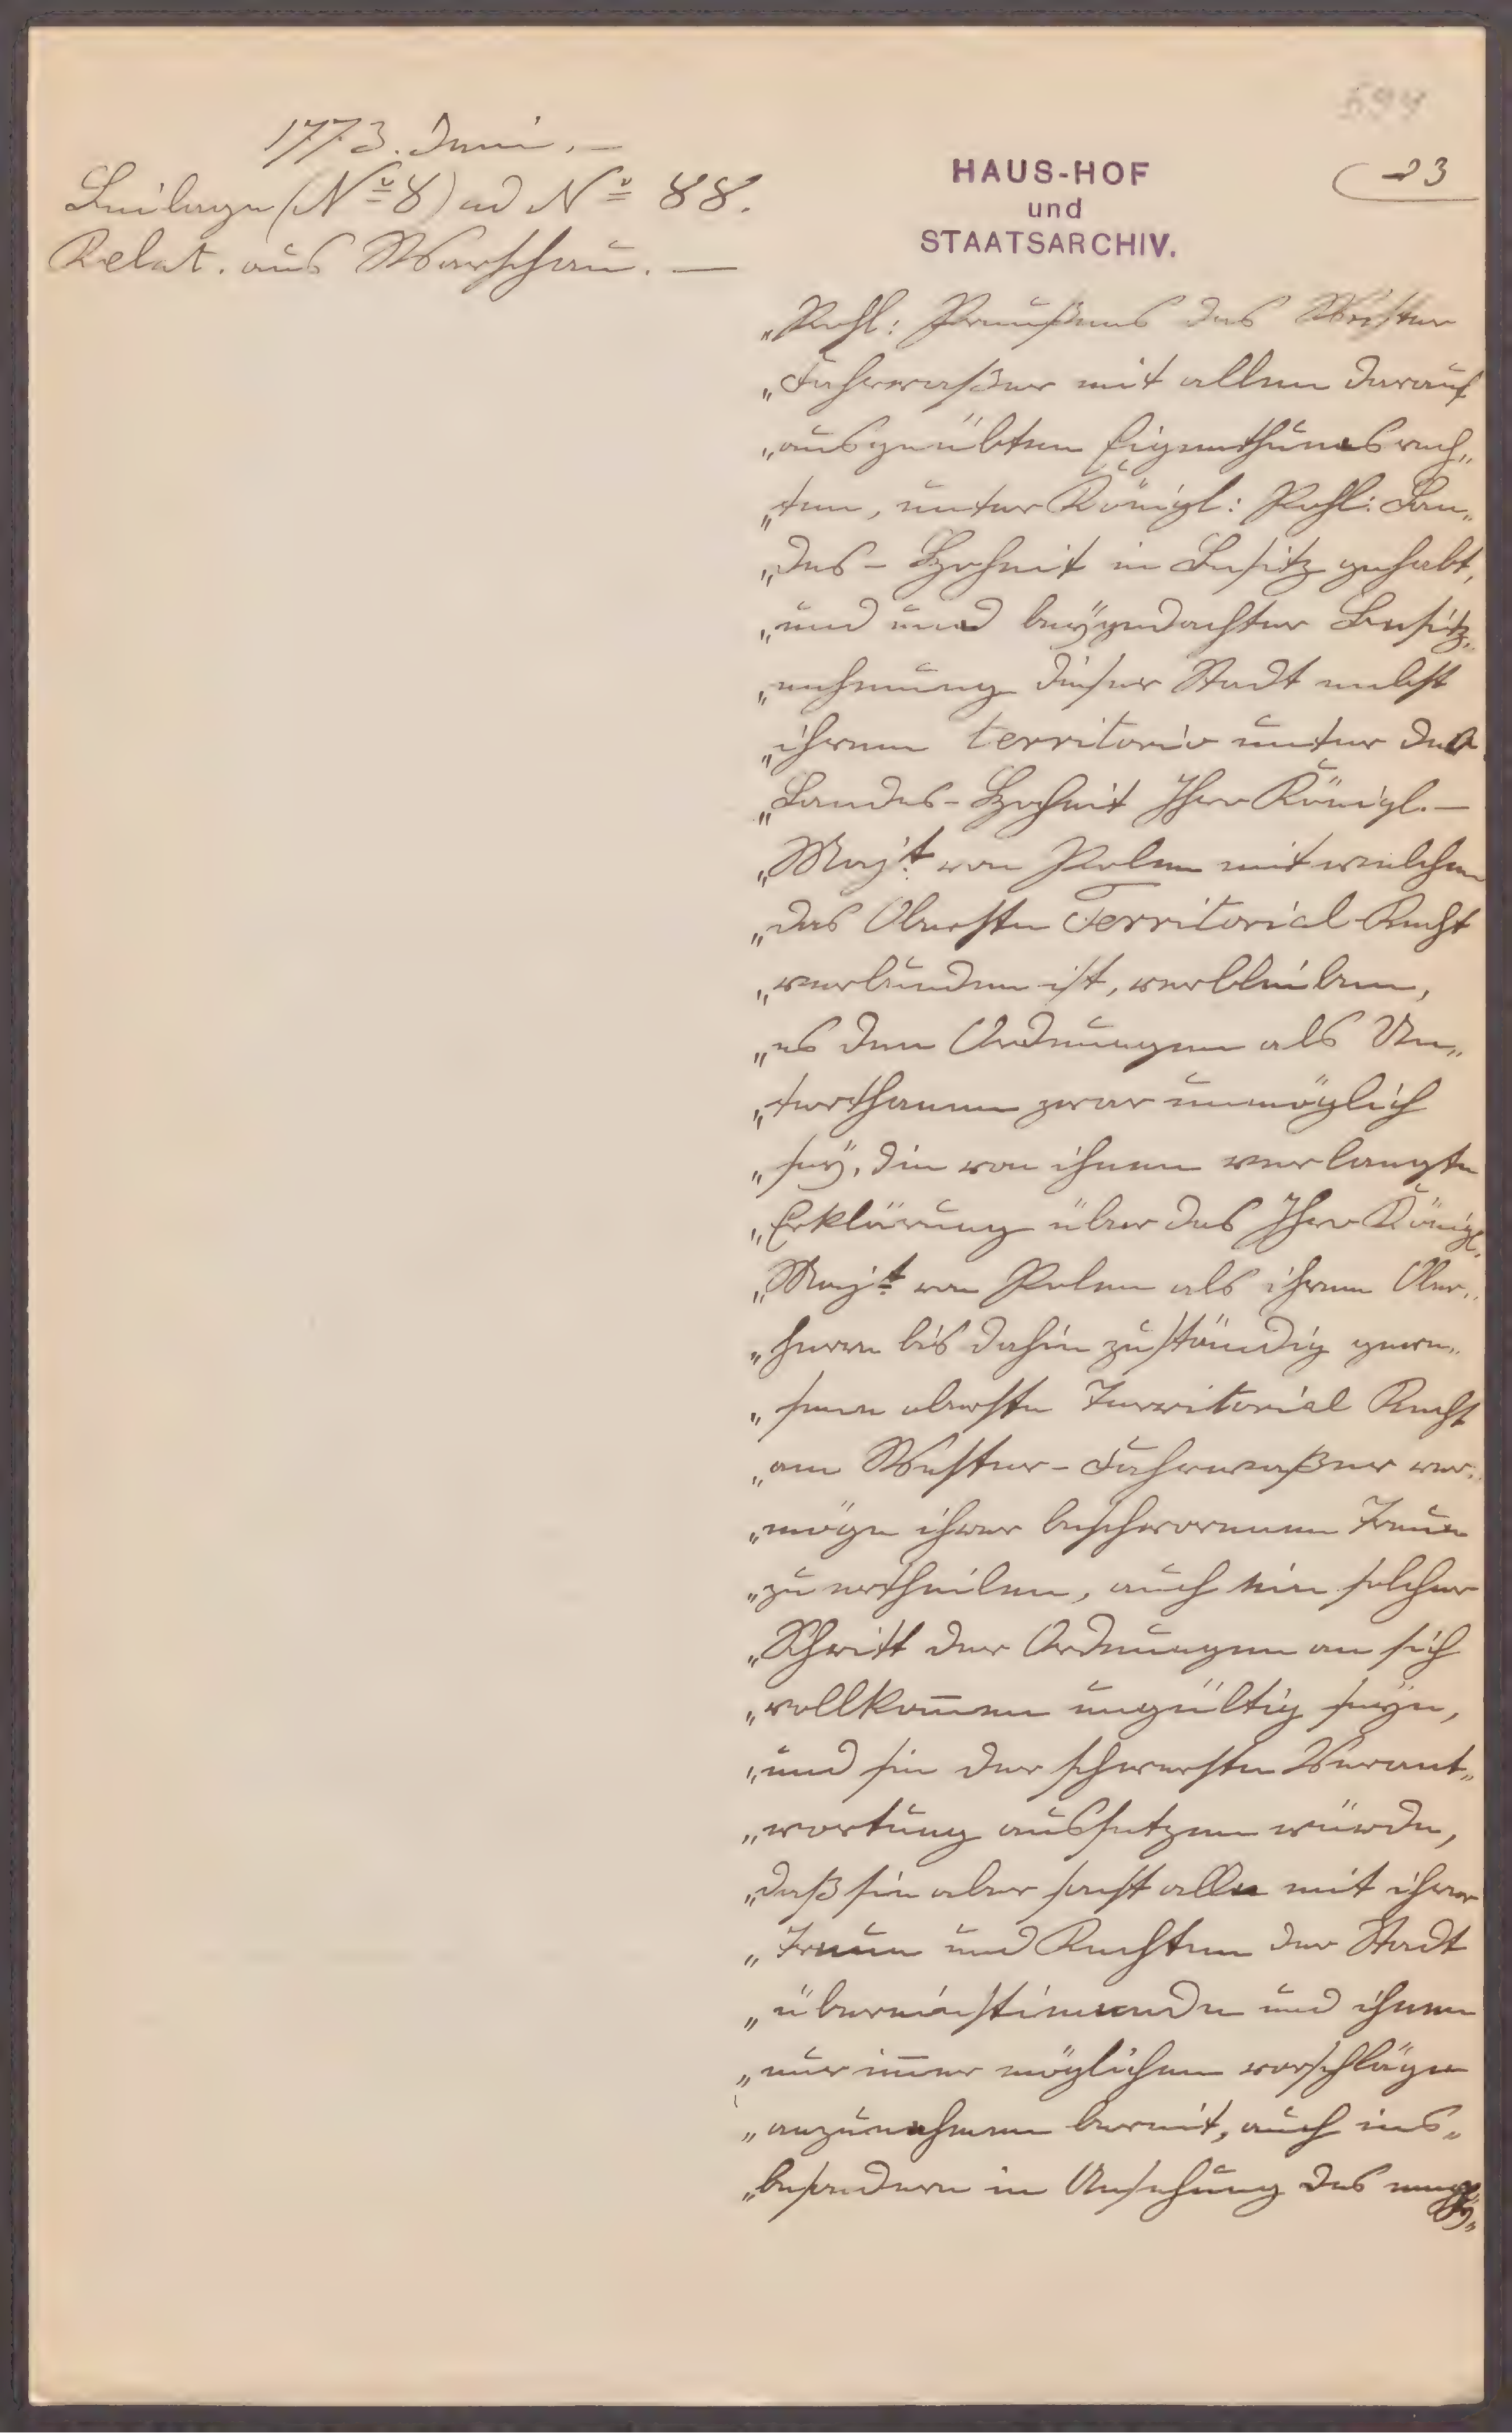 694
23
1773. Juni. —
Beilage (No 8) ad No 88.
Relat. aus Warschau. —
HAUS-HOF
und
STAATSARCHIV.
„Pohl: Preußens das Wester
„Fahrwaßer mit allen darauf
„ausgeübten Eigenthumsrech„
„ten, unter Königl: Pohl: Lan„
„des-Hoheit in Besitz gehabt,
„und und beÿgedachter Besitz„
„nehmung dieser Stadt nebst
„ihrem territorio unter der
„Landes-Hoheit Ihro Königl. —
„Maj:t von Polen mit welcher
„das Oberste Territorial Recht
„verbunden ist, verblieben,
„es den Ordnungen als Un„
„terthanen zwar unmöglich
„seÿ, die von ihnen verlangte
„Erklärung über das Ihro Königl.
„Maj:t von Polen als ihrem Ober„
„herrn bis dahin zuständig gewe„
„sene oberste Territorial Recht
„am Wester-Fahrwaßer ver„
„möge ihrer beschworenen Treue
„zu ertheilen, auch ein solcher
„Schritt der Ordnungen an sich
„vollkom̄en ungültig seÿn,
„und sie der schwersten Verant„
„wortung aussetzen würde,
„daß sie aber sonst alle mit ihrer
„Treue und Rechten der Stadt
„übereinstimmende und ihnen
„nur im̄er möglichen vorschläge
„anzunehmen bereit, auch ins„
„besondere in Ansehung des